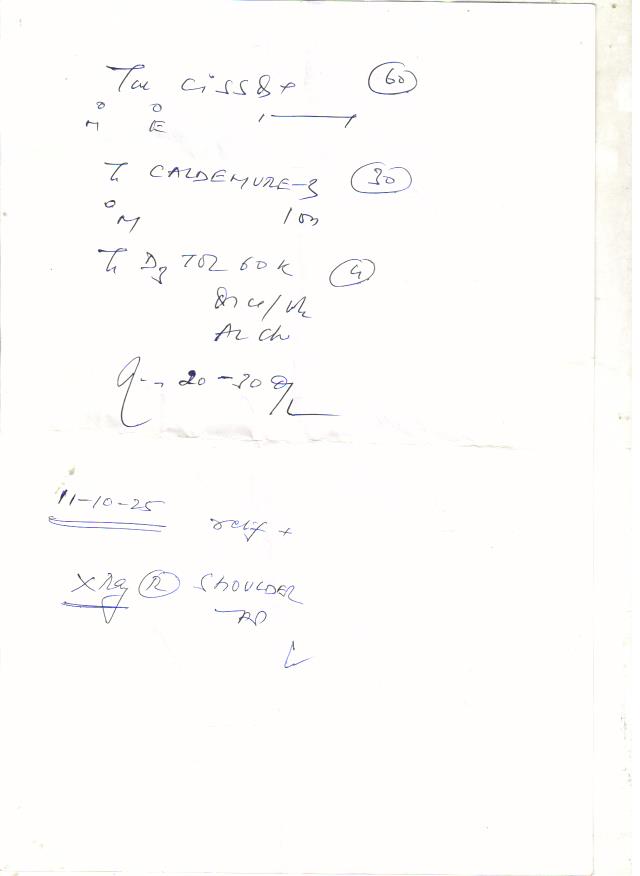 Tab CiSS8+ 60
M E
T. CALDEMURE-3 30
M 1 on
T. D3 TOL 60K 4
Once/wk
20 - 30
11-10-25 relief +
XRay R SHOULDER
AP